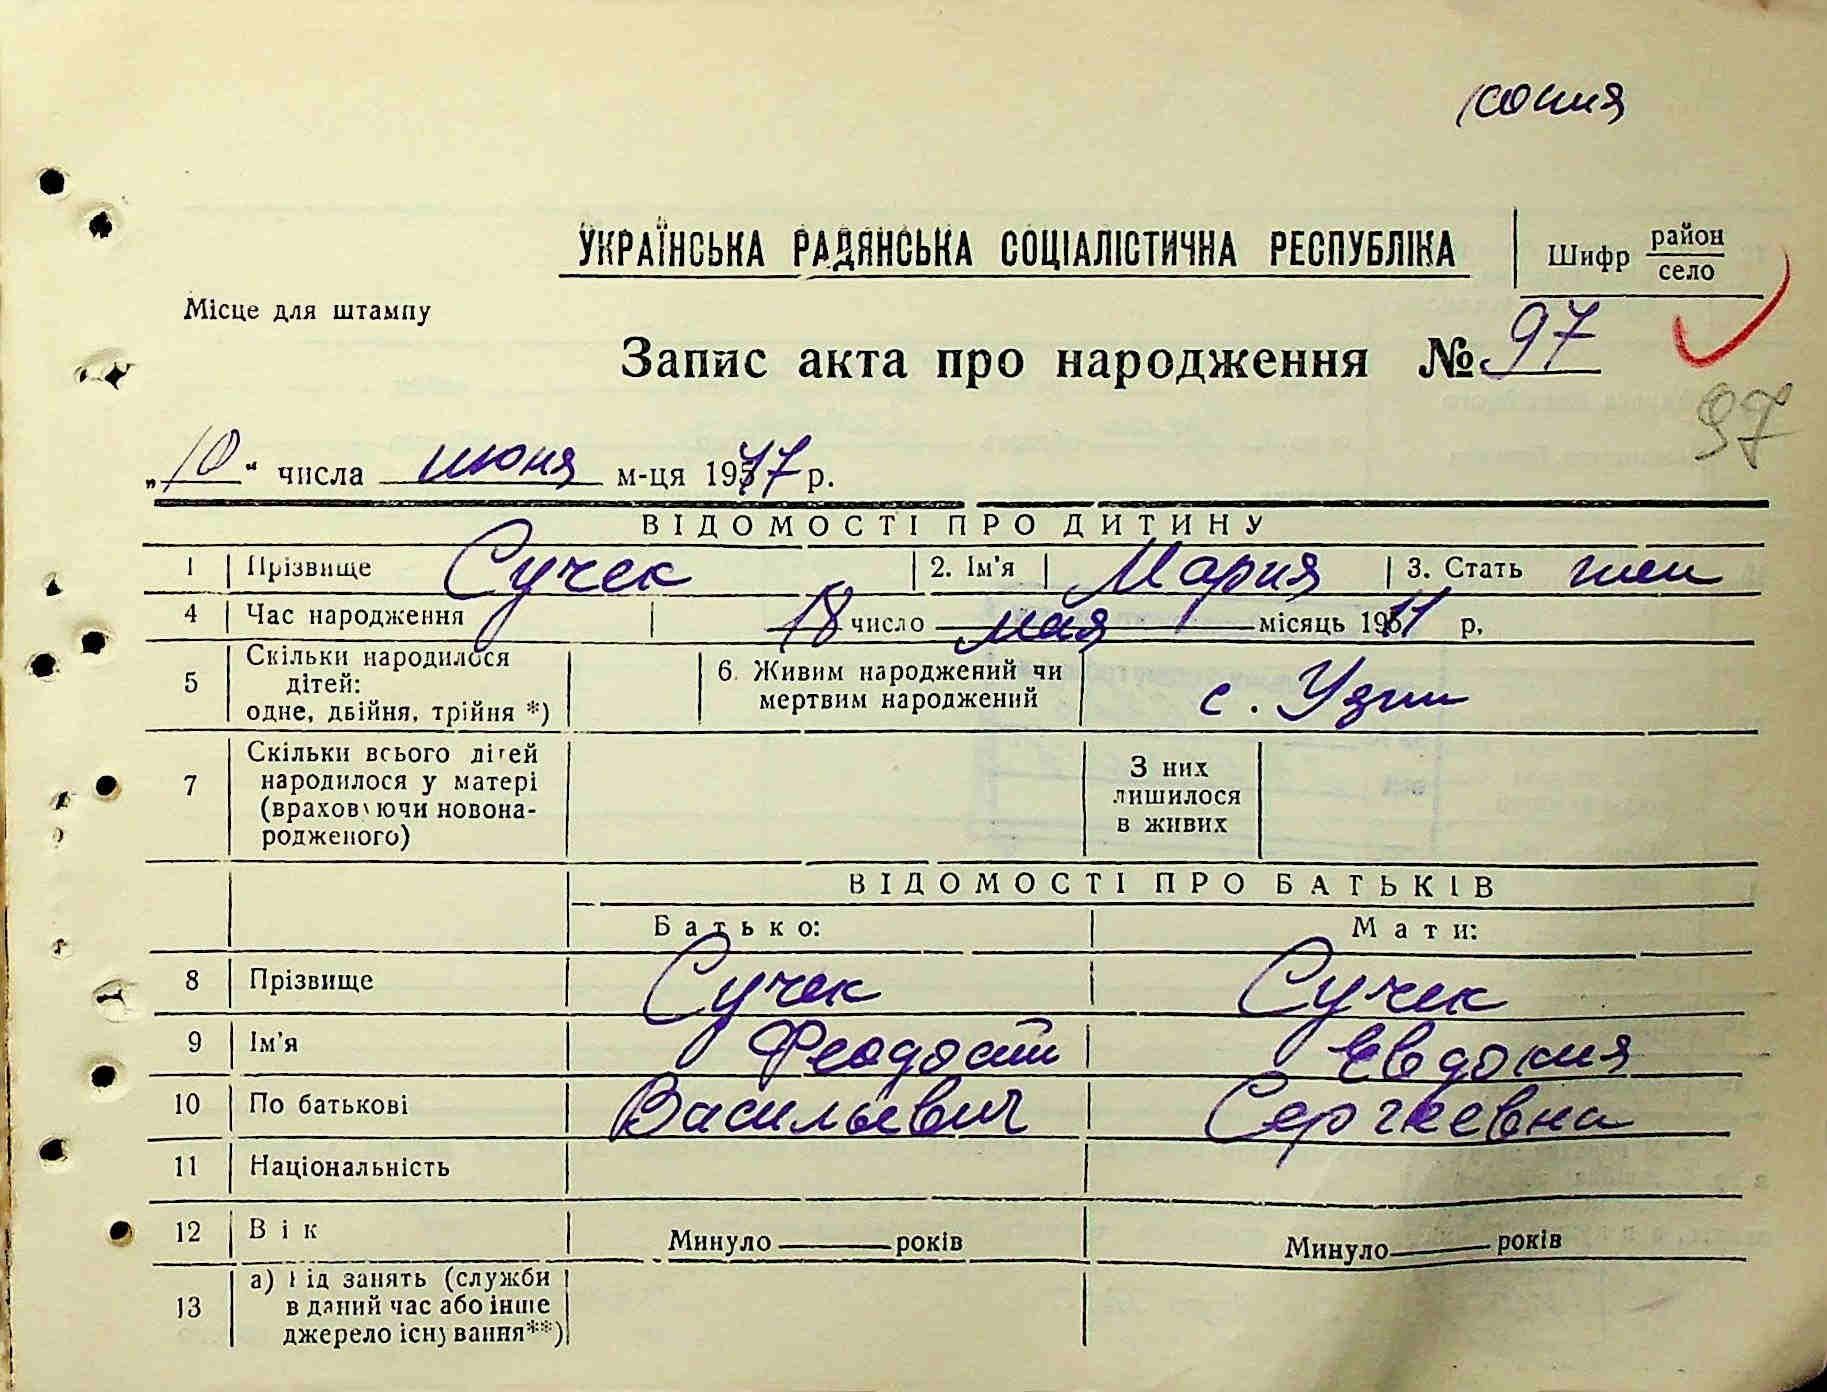 копия
УКРАЇНСЬКА РАДЯНСЬКА СОЦІАЛІСТИЧНА РЕСПУБЛІКА
Шифр район село
Місце для штампу
Запис акта про народження № 97
97
„10“ числа июня м-ця 1977 р.
ВІДОМОСТІ ПРО ДИТИНУ
1 Прізвище Сучек 2. Ім'я Мария 3. Стать жен
4 Час народження 18 число мая місяць 1911 р.
5 Скільки народилося дітей: одне, двійня, трійня *) 6. Живим народжений чи мертвим народжений с. Узин
7 Скільки всього дітей народилося у матері (враховуючи новонародженого) З них лишилося в живих
ВІДОМОСТІ ПРО БАТЬКІВ
Батько: Мати:
8 Прізвище Сучек Сучек
9 Ім'я Феодосий Евдокия
10 По батькові Васильевич Сергеевна
11 Національність
12 Вік Минуло років Минуло років
13 а) Рід занять (служби в даний час або інше джерело існування**)